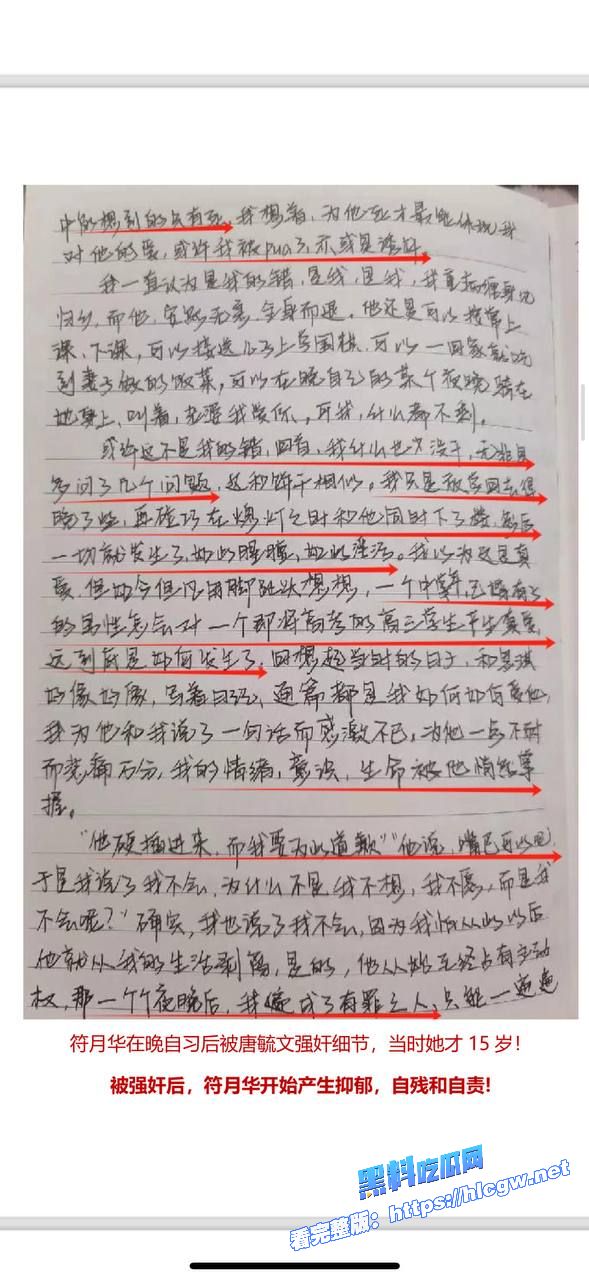 中能想到的只有死，我想着，为他死才最能体现我
对他的爱，或许我被pua了，亦或是诡计。
我一直认为是我的错，是我，是我，我
归乡，而他，安然无恙，全身而退。他还是可以接着上
课、下课，可以接送儿子上学围棋，可以一回家就吃
到妻子做的饭菜，可以在晚自习的某个夜晚骑在
她身上，叫着，老婆我爱你，可我，什么都不剩。
或许这不是我的错，回首，我什么也没干，无非是
多问了几个问题，这和饼干相似。我只是放学回去得
晚了些，再碰巧在熄灯之时和他同时下了楼，然后
一切就发生了，如此腥膻，如此淫活。我以为这是真
爱，但如今但凡用脚趾头想想，一个中年已婚有子
的男性怎会对一个即将高考的高三学生产生真爱，
这到底是如何发生了，回想起当时的日子，和思琪
好像好像，写着日记，通篇都是我如何如何爱他，
我为他和我说了一句话而感激不已，为他一点不耐
而悲痛万分，我的情绪，意识，生命被他悄然掌
握。
“他硬插进来，而我要为此道歉”“他说，嘴巴可以吧，
于是我说了我不会，为什么不是我不想，我不愿，而是我
不会呢？”确实，我也说了我不会，因为我怕从此以后
他就从我的生活剥离，是的，他从始至终占有主动
权，那一个个夜晚后，我便成了有罪之人，只能一遍遍
符月华在晚自习后被唐毓文强奸细节，当时她才 15 岁！
被强奸后，符月华开始产生抑郁，自残和自责!
黑料吃瓜网
看完整版：https://hlcgw.net